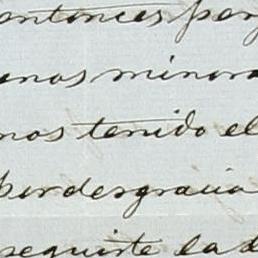 entonces por
enos minora
nos tenido el
por desgracia
seguiste la d